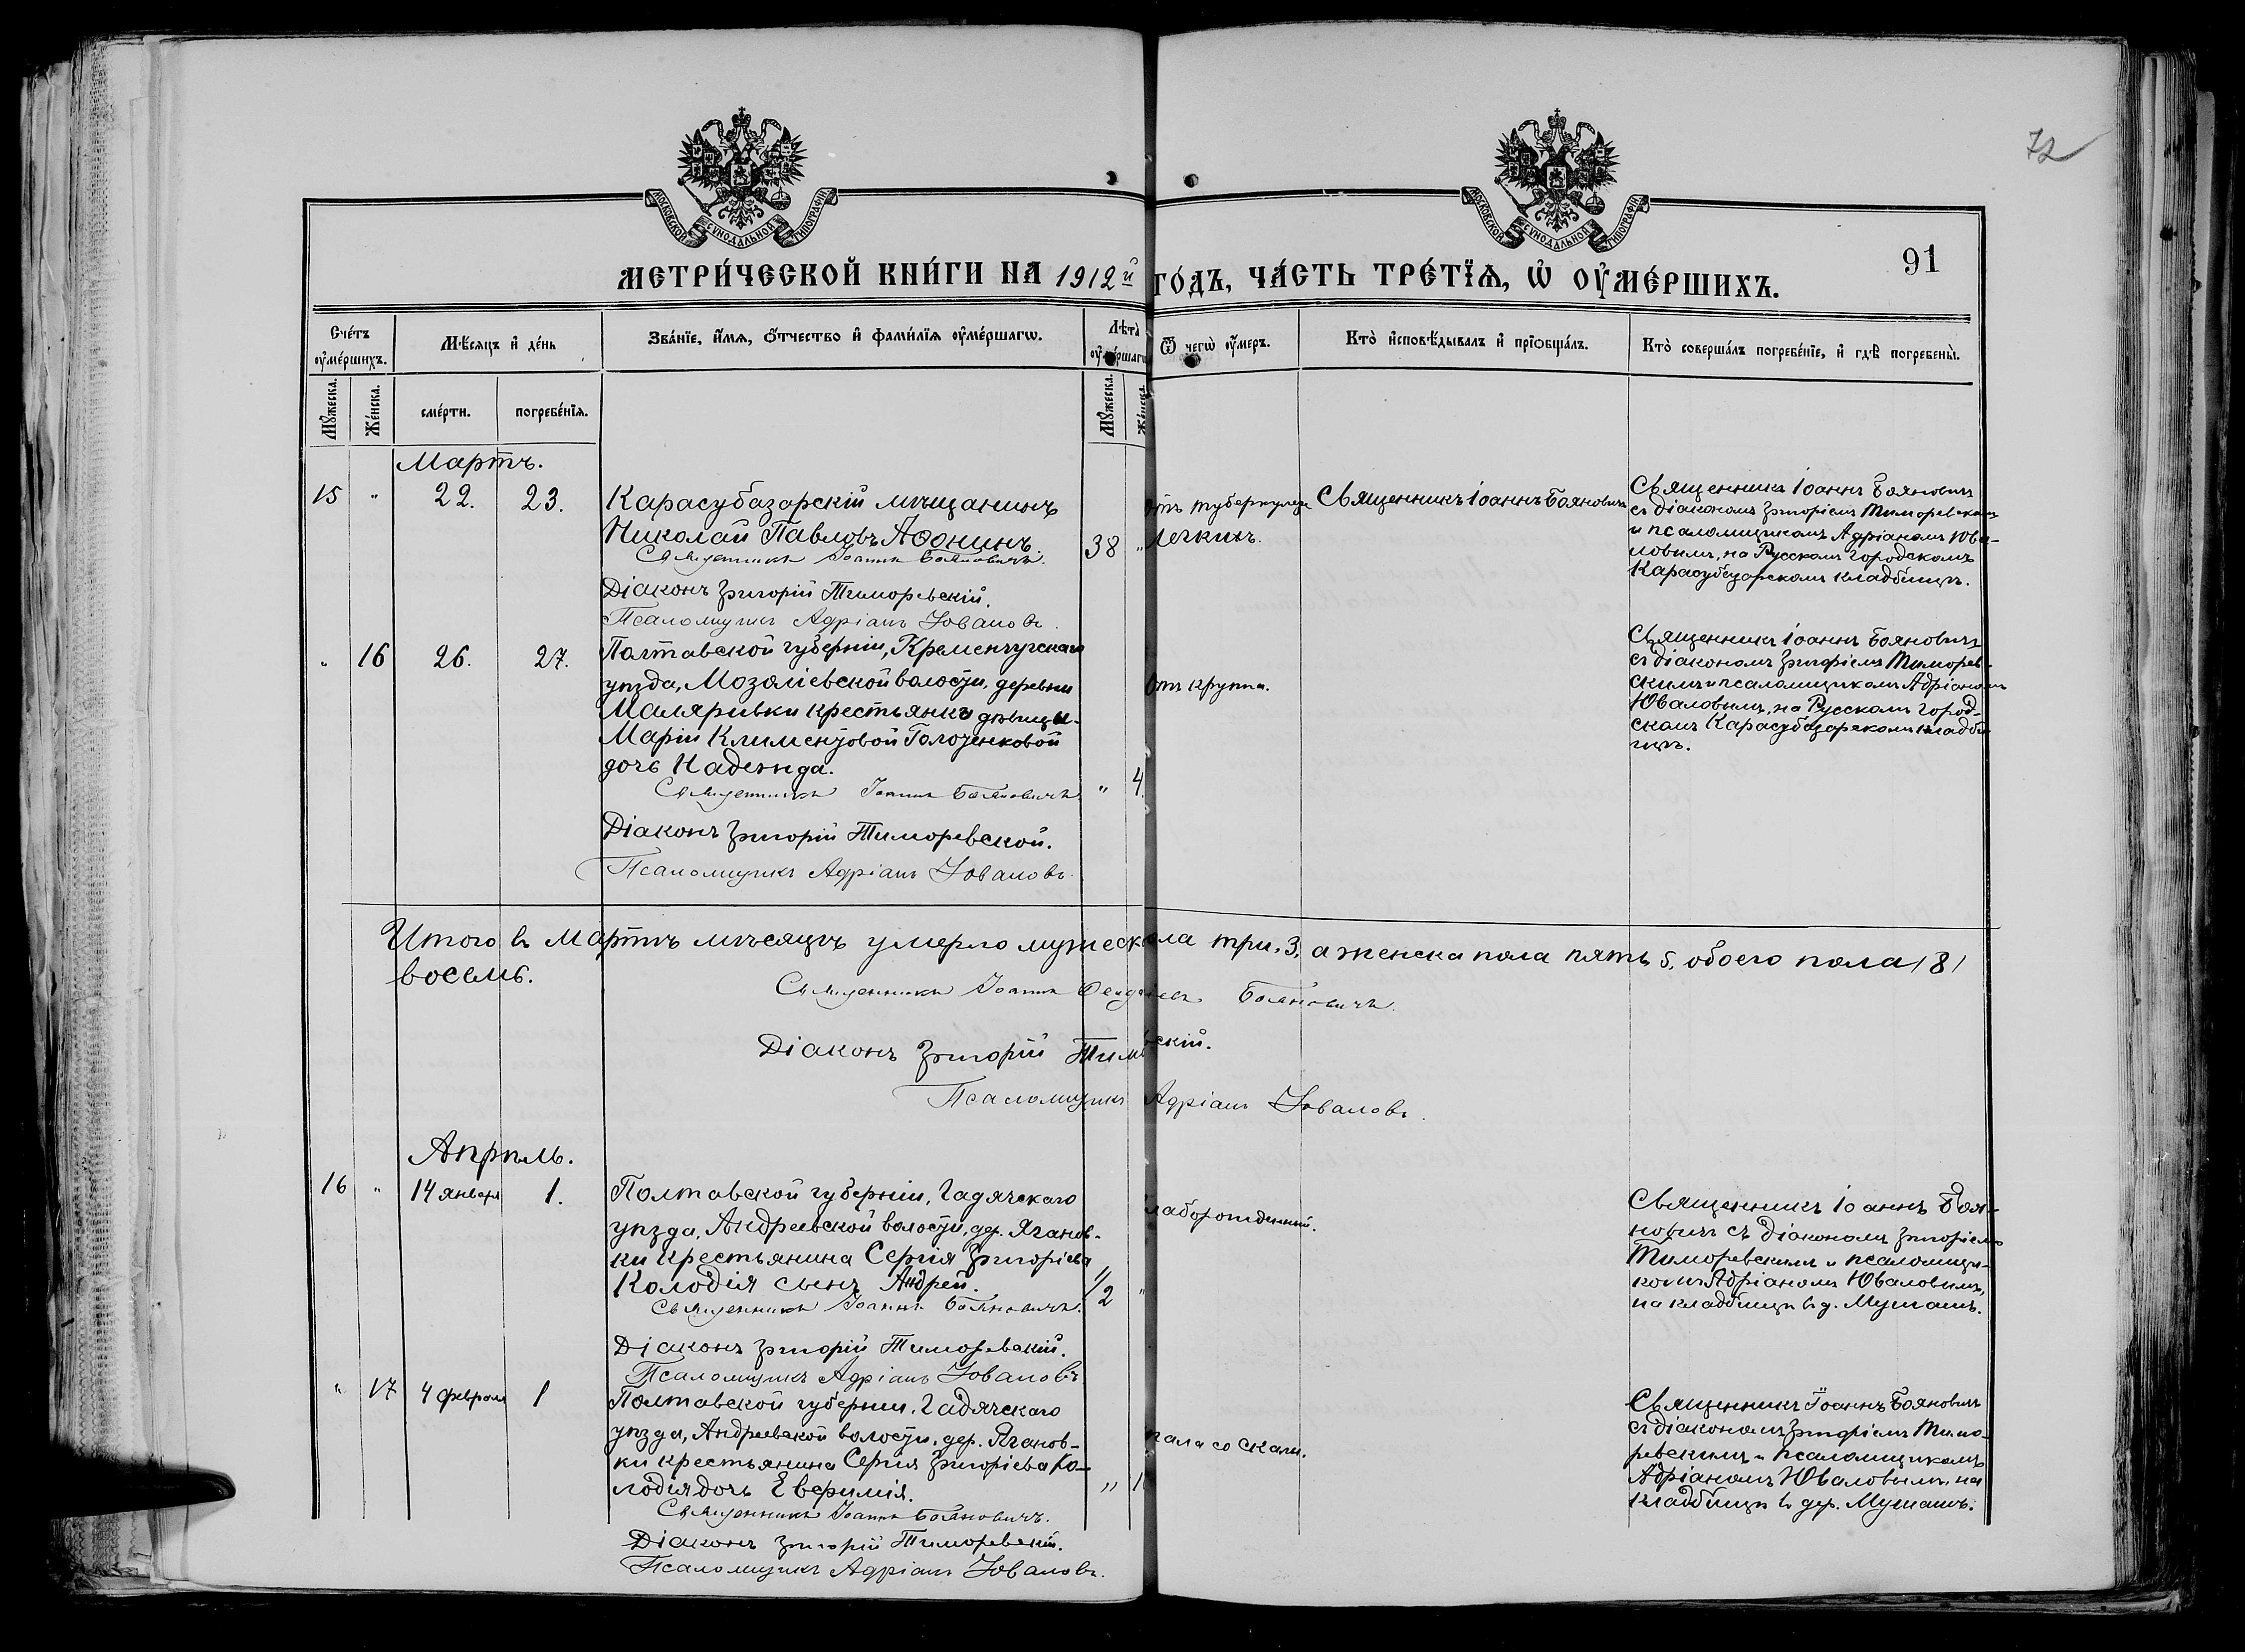 72
МОСКОВСКОЙ СѴНОДАЛЬНОЙ ТИПОГРАФІИ
МОСКОВСКОЙ СѴНОДАЛЬНОЙ ТИПОГРАФІИ
91
МЕТРИ́ЧЕСКОЙ КНИ́ГИ НА 1912й ГО́ДЪ, ЧА́СТЬ ТРЕ́ТЇѦ, Ѡ҆ ОУ҆МЕ́РШИХЪ.
Сче́тъ оу҆ме́ршихъ.
Мѣ́сяцъ и҆ де́нь
Зва́нїе, и҆́мѧ, ѻ҆́тчество и҆ фами́лїѧ оу҆ме́ршагѡ.
Лѣта̀ оу҆ме́ршагѡ
Ѿ чегѡ̀ оу҆́меръ.
Кто̀ и҆сповѣ́дывалъ и҆ прїѻбща́лъ.
Кто̀ соверша́лъ погребе́нїе, и҆ гдѣ̀ погребены̀.
Мꙋ́жеска.
Же́нска.
сме́рти.
погребе́нїѧ.
Мꙋ́жеска.
Же́нска.
Мартъ.
15 " 22. 23.
Карасубазарскій мѣщанинъ
Николай Павловъ Аѳонинъ.
38 "
Священникъ Іоаннъ Бояновичъ.
Діаконъ Григорій Тиморевскій.
Псаломщикъ Адріанъ Юваловъ.
отъ туберкулеза
легкихъ.
Священникъ Іоаннъ Бояновичъ
Священникъ Іоаннъ Бояновичъ
съ діакономъ Григоріемъ Тиморевскимъ
и псаломщикомъ Адріаномъ Юва-
ловымъ, на Русскомъ городскомъ
Карасубазарскомъ кладбищѣ.
" 16 26. 27.
Полтавской губерніи, Кременчугскаго
уѣзда, Мозоліевской волости, деревни
Маляривки крестьянки дѣвицы
Маріи Климентовой Голоденковой
дочь Надежда.
" 4.
Священникъ Іоаннъ Бояновичъ.
Діаконъ Григорій Тиморевской.
Псаломщикъ Адріанъ Юваловъ.
Отъ крупа.
Священникъ Іоаннъ Бояновичъ
съ діакономъ Григоріемъ Тиморев-
скимъ и псаломщикомъ Адріаномъ
Юваловымъ, на Русскомъ город-
скомъ Карасубазарскомъ кладби-
щѣ.
Итого въ Мартѣ мѣсяцѣ умерло мужеска пола три, 3, а женска пола пять 5, обоего пола /8/
восемь.
Священникъ Іоаннъ Бояновичъ.
Діаконъ Григорій Тим вскій.
Псаломщикъ Адріанъ Юваловъ.
Апрѣль.
16 " 14 января 1.
Полтавской губерніи, Гадячскаго
уѣзда, Андреевской волости, дер. Яганов-
ки крестьянина Сергія Григоріева
Колодія сынъ Андрей.
1/2 "
Священникъ Іоаннъ Бояновичъ.
Діаконъ Григорій Тиморевскій.
Псаломщикъ Адріанъ Юваловъ.
лаборожденный.
Священникъ Іоаннъ Боя-
новичъ съ діакономъ Григоріемъ
Тиморевскимъ и псаломщи-
комъ Адріаномъ Юваловымъ,
на кладбищѣ въ д. Мушашъ.
" 17 4 февраля 1
Полтавской губерніи, Гадячскаго
уѣзда, Андреевской волости, дер. Яганов-
ки крестьянина Сергія Григоріева Ко-
лодія дочь Евфимія.
" 1
Священникъ Іоаннъ Бояновичъ.
Діаконъ Григорій Тиморевскій.
Псаломщикъ Адріанъ Юваловъ.
пала со скалы.
Священникъ Іоаннъ Бояновичъ
съ діакономъ Григоріемъ Тимо-
ревскимъ и псаломщикомъ
Адріаномъ Юваловымъ, на
кладбищѣ въ дер. Мушашъ.